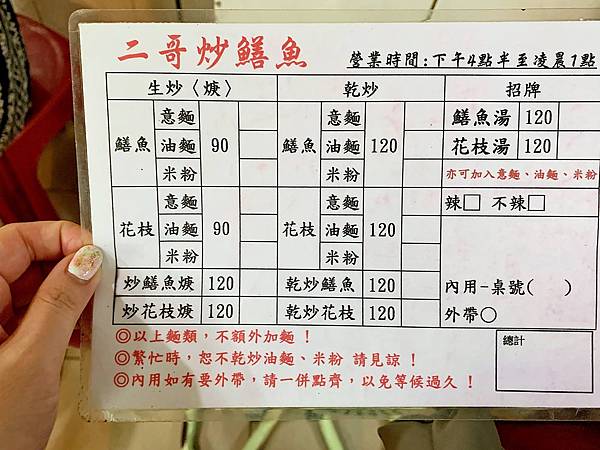 二哥炒鱔魚
營業時間:下午4點半至凌晨1點
生炒〈焿〉 乾炒 招牌
鱔魚 意麵 油麵 米粉 90 鱔魚 意麵 油麵 米粉 120 鱔魚湯 120
花枝湯 120
亦可加入意麵、油麵、米粉
花枝 意麵 油麵 米粉 90 花枝 意麵 油麵 米粉 120 辣□ 不辣□
炒鱔魚焿 120 乾炒鱔魚 120 內用-桌號( )
炒花枝焿 120 乾炒花枝 120 外帶○
◎以上麵類，不額外加麵！
◎繁忙時，恕不乾炒油麵、米粉 請見諒！
◎內用如有要外帶，請一併點齊，以免等候過久！
總計